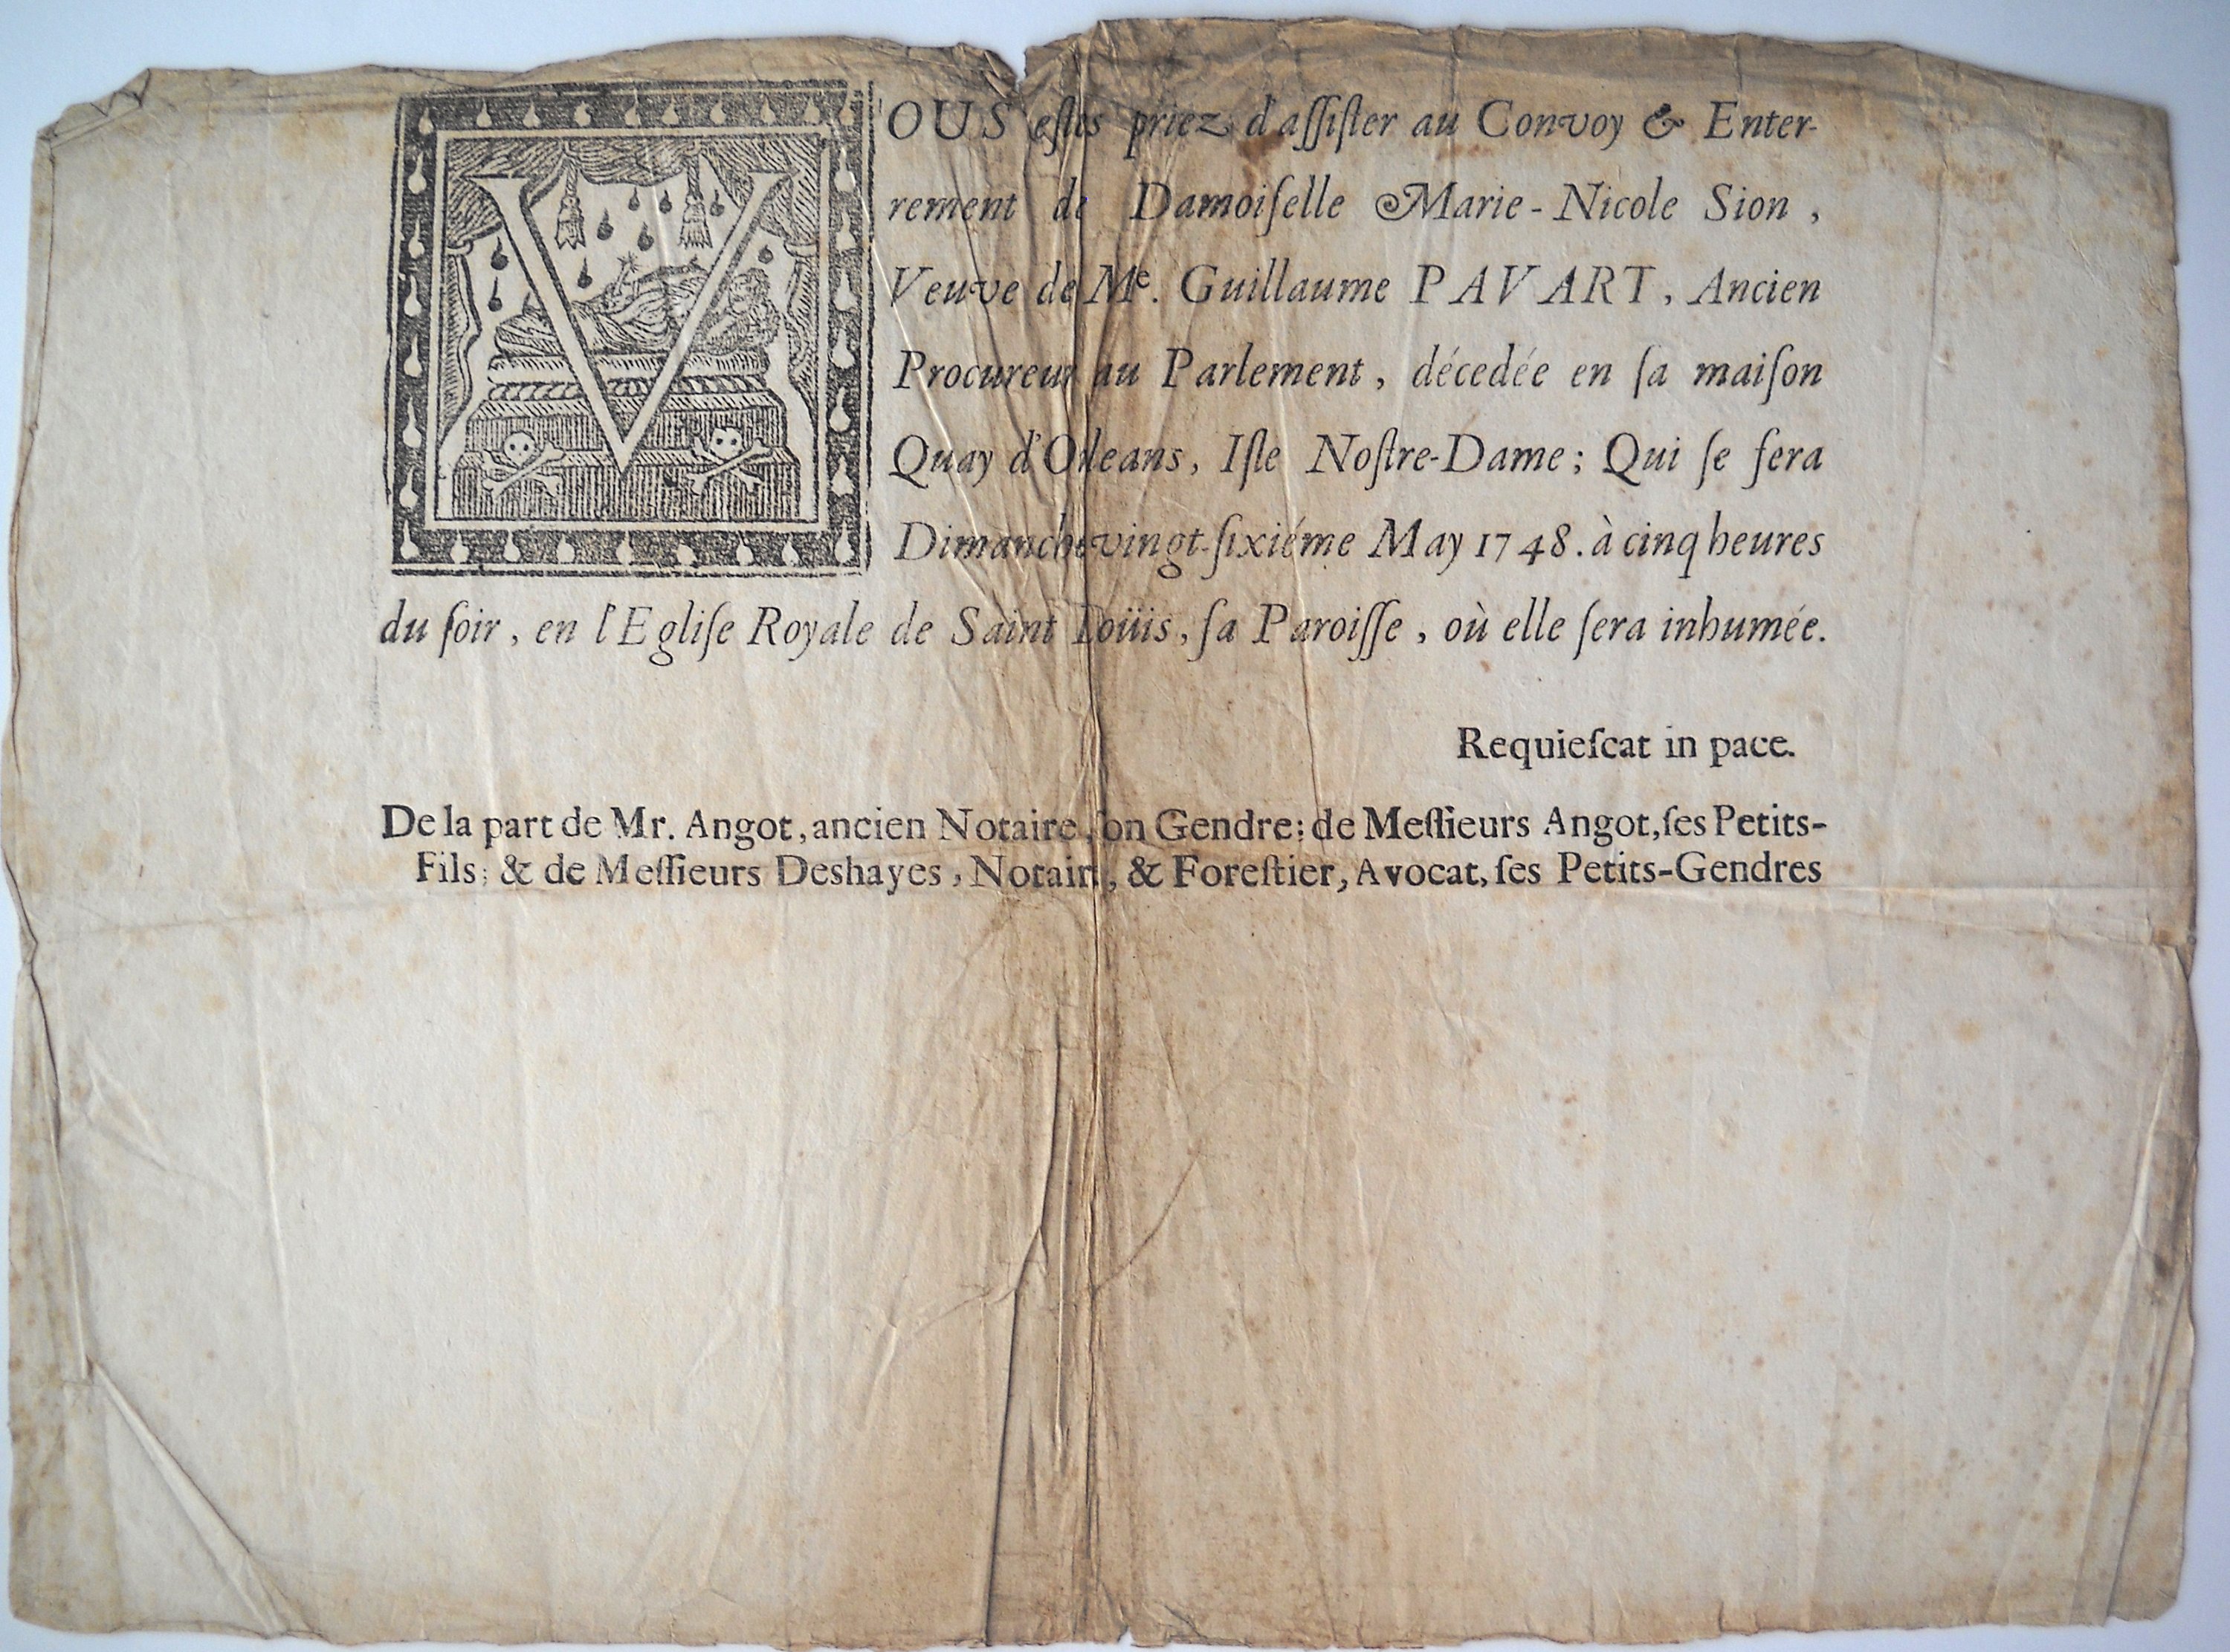 VOUS estes priez d'assister au Convoy & Enter-
rement de Damoiselle Marie-Nicole Sion,
Veuve de Me. Guillaume PAVART, Ancien
Procureur au Parlement, décedée en sa maison
Quay d'Orleans, Isle Nostre-Dame; Qui se fera
Dimanche vingt-sixiéme May 1748. à cinq heures
du soir, en l'Eglise Royale de Saint Loüis, sa Paroisse, où elle sera inhumée.
Requiescat in pace.
De la part de Mr. Angot, ancien Notaire, son Gendre; de Messieurs Angot, ses Petits-
Fils; & de Messieurs Deshayes, Notaire, & Forestier, Avocat, ses Petits-Gendres